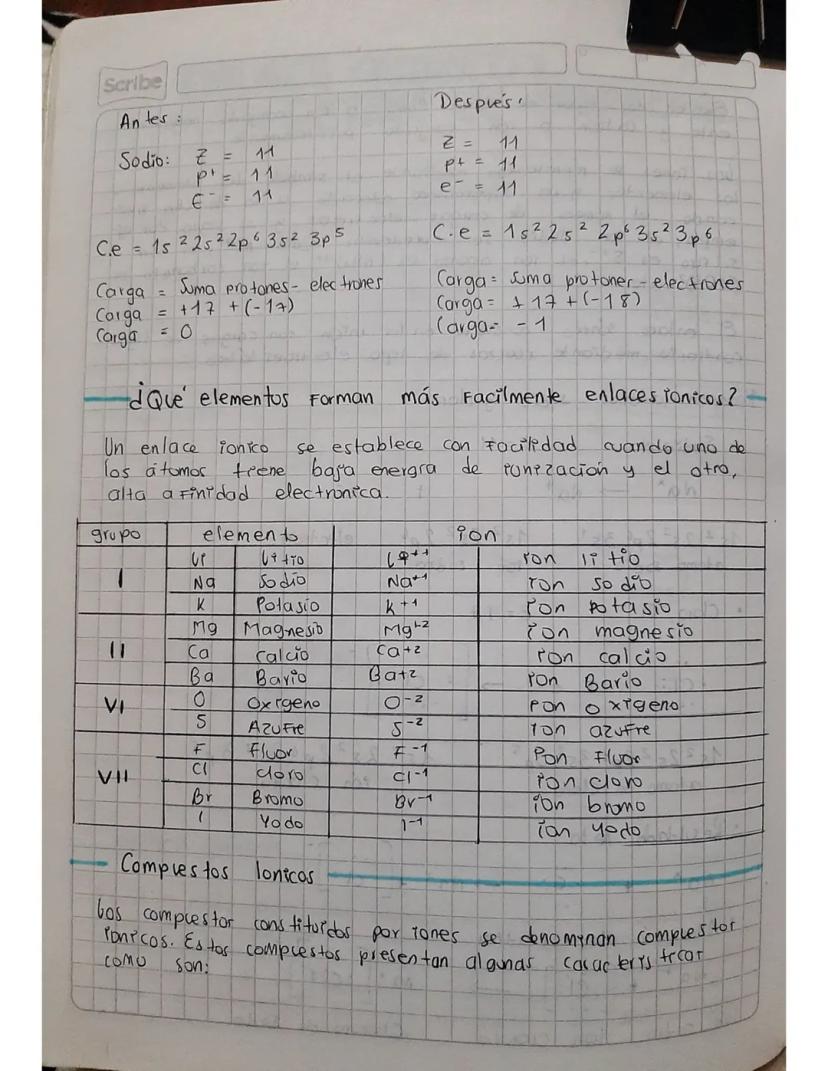 Scribe
Antes:
Sodio: Z = 11
p+ = 11
e- = 11
C.e = 1s² 2s² 2p⁶ 3s² 3p⁵
Carga = Suma protones - electrones
Carga = +17 + (-17)
Carga = 0
Después:
Z = 11
p+ = 11
e- = 11
C.e = 1s² 2s² 2p⁶ 3s² 3p⁶
Carga = suma protones - electrones
Carga = +17 + (-18)
Carga = -1
¿Qué elementos Forman más Facilmente enlaces ionicos?
Un enlace ionico se establece con Facilidad cuando uno de
los átomos tiene baja energia de ionizacion y el otro,
alta aFinidad electronica.
grupo elemento ion
I Li Litio Li+1 ion litio
Na Sodio Na+1 ion sodio
K Potasio K+1 ion potasio
II Mg Magnesio Mg+2 ion magnesio
Ca calcio Ca+2 ion calcio
Ba Bario Ba+2 ion Bario
VI O Oxigeno O-2 ion oxigeno
S AzuFre S-2 ion azufre
VII F Fluor F-1 ion Fluor
Cl cloro Cl-1 ion cloro
Br Bromo Br-1 ion bromo
I Yodo I-1 ion yodo
Compuestos Ionicos
Los compuestos constituidos por iones se denominan compuestos
ionicos. Estos compuestos presentan algunas caracteristicas
como son: